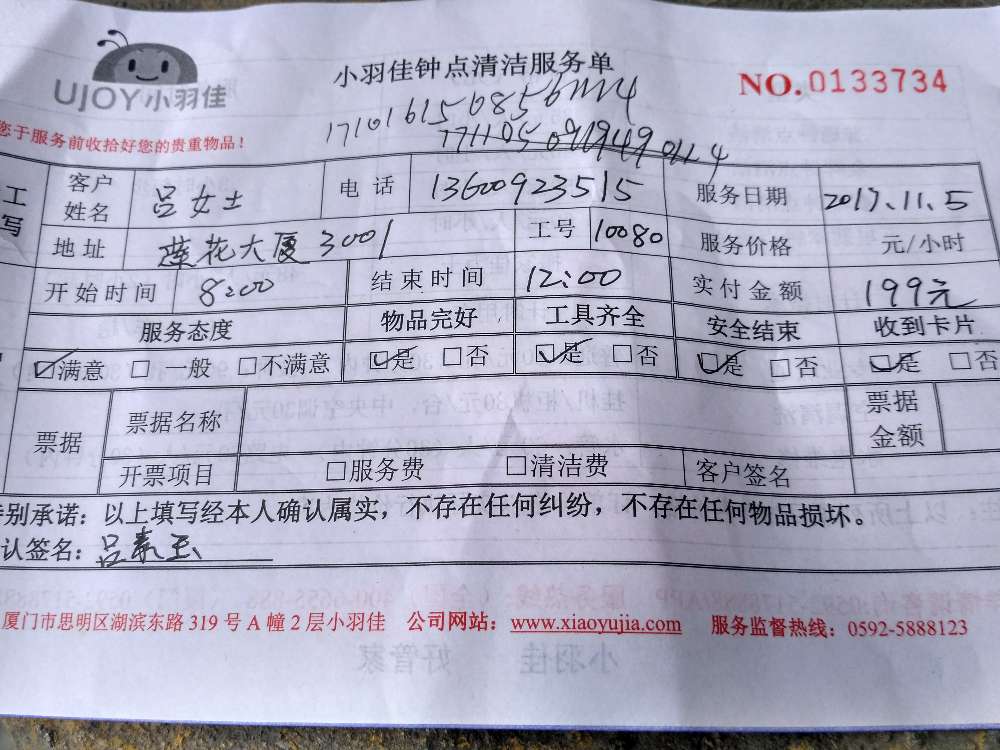 UJOY小羽佳
小羽佳钟点清洁服务单
NO.0133734
您于服务前收拾好您的贵重物品!
工 客户姓名 吕女士 电话 13600923515 服务日期 2017.11.5
写 地址 莲花大厦3001 工号 10080 服务价格 元/小时
开始时间 8:00 结束时间 12:00 实付金额 199元
服务态度 物品完好 工具齐全 安全结束 收到卡片
☑满意 □一般 □不满意 ☑是 □否 ☑是 □否 ☑是 □否 ☑是 □否
票据 票据名称 票据金额
开票项目 □服务费 □清洁费 客户签名
特别承诺:以上填写经本人确认属实,不存在任何纠纷,不存在任何物品损坏。
认签名:吕素玉
厦门市思明区湖滨东路 319 号 A 幢 2 层小羽佳 公司网站:www.xiaoyujia.com 服务监督热线:0592-5888123